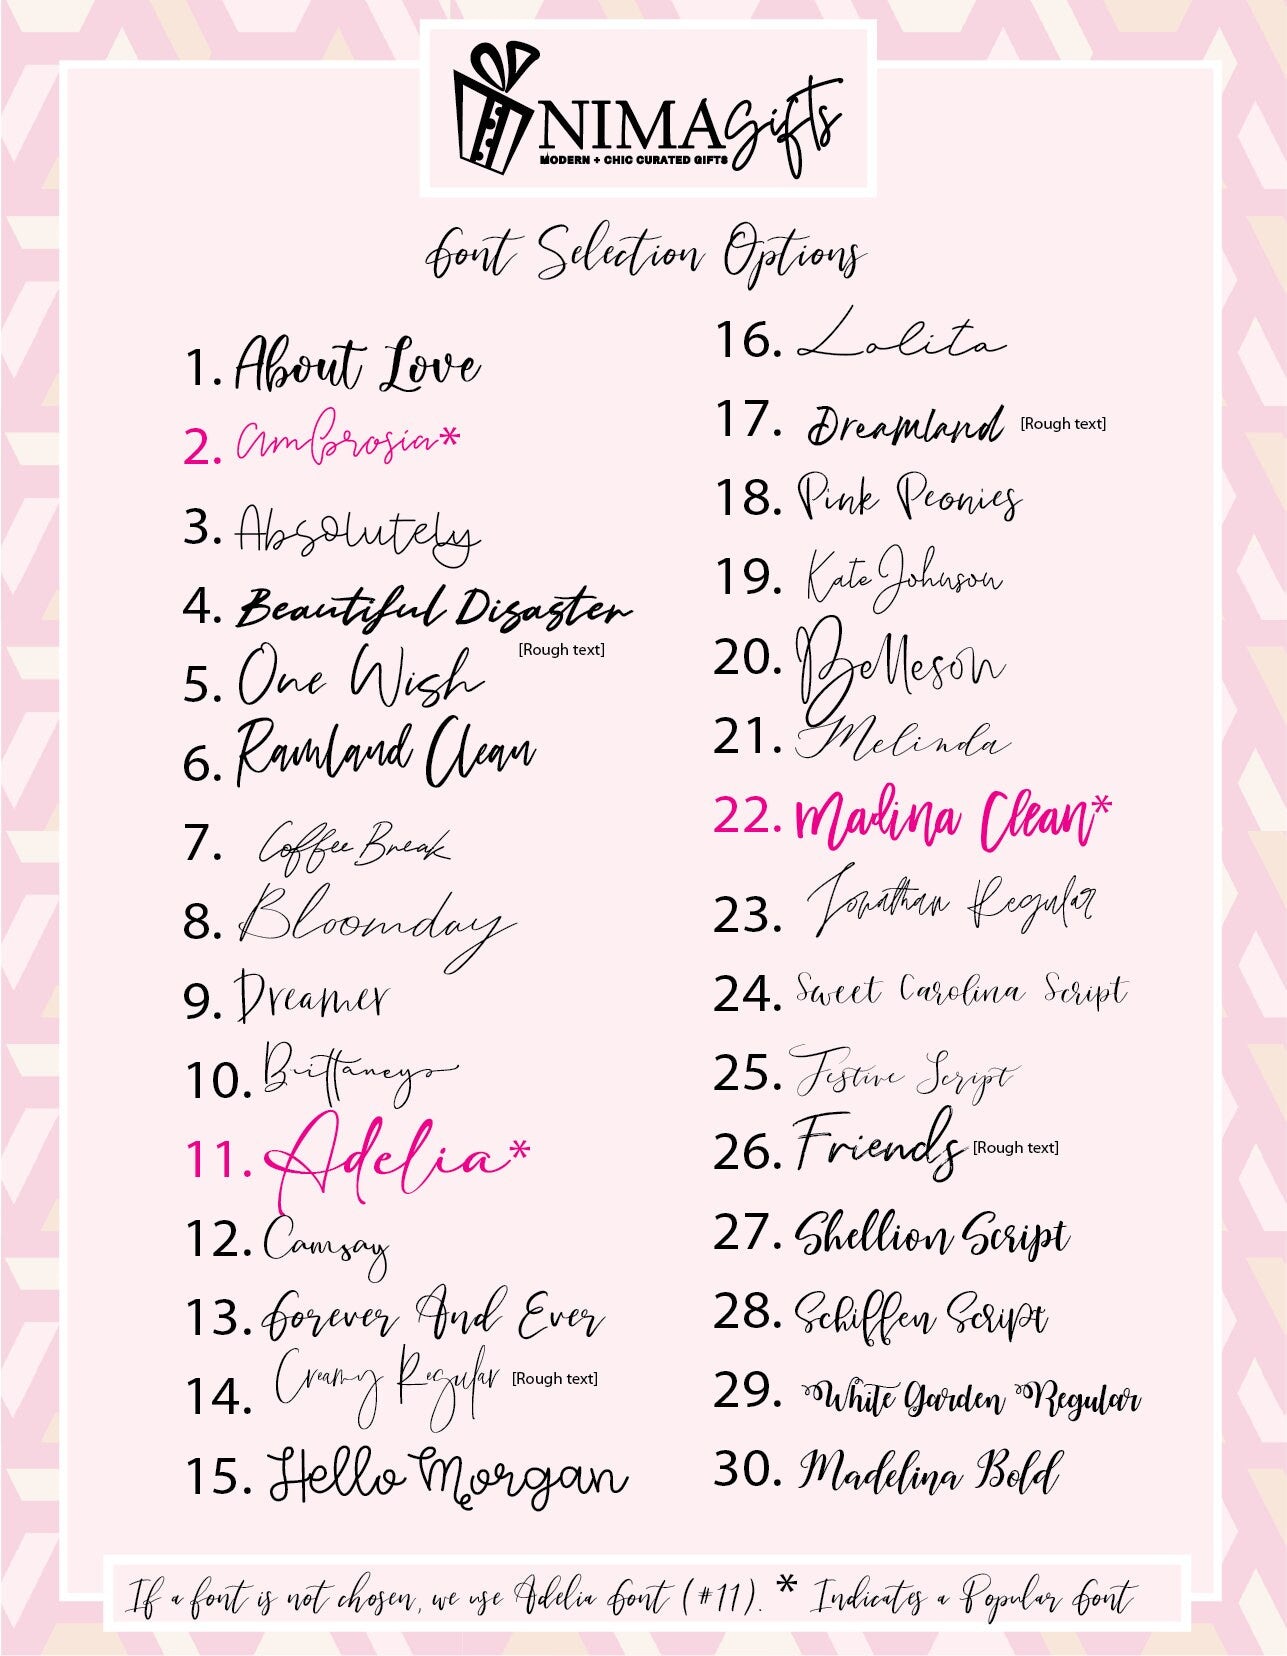 NIMAGifts
MODERN + CHIC CURATED GIFTS
Font Selection Options
1. About Love
2. Ambrosia*
3. Absolutely
4. Beautiful Disaster
[Rough text]
5. One Wish
6. Ramland Clean
7. Coffee Break
8. Bloomday
9. Dreamer
10. Brittaneys
11. Adelia*
12. Camsay
13. Forever And Ever
14. Creamy Regular [Rough text]
15. Hello Morgan
16. Lolita
17. Dreamland [Rough text]
18. Pink Peonies
19. Kate Johnson
20. Belleson
21. Melinda
22. Madina Clean*
23. Jonathan Regular
24. Sweet Carolina Script
25. Festive Script
26. Friends [Rough text]
27. Shellion Script
28. Schiffen Script
29. White Garden Regular
30. Madelina Bold
If a font is not chosen, we use Adelia font (#11). * Indicates a Popular font